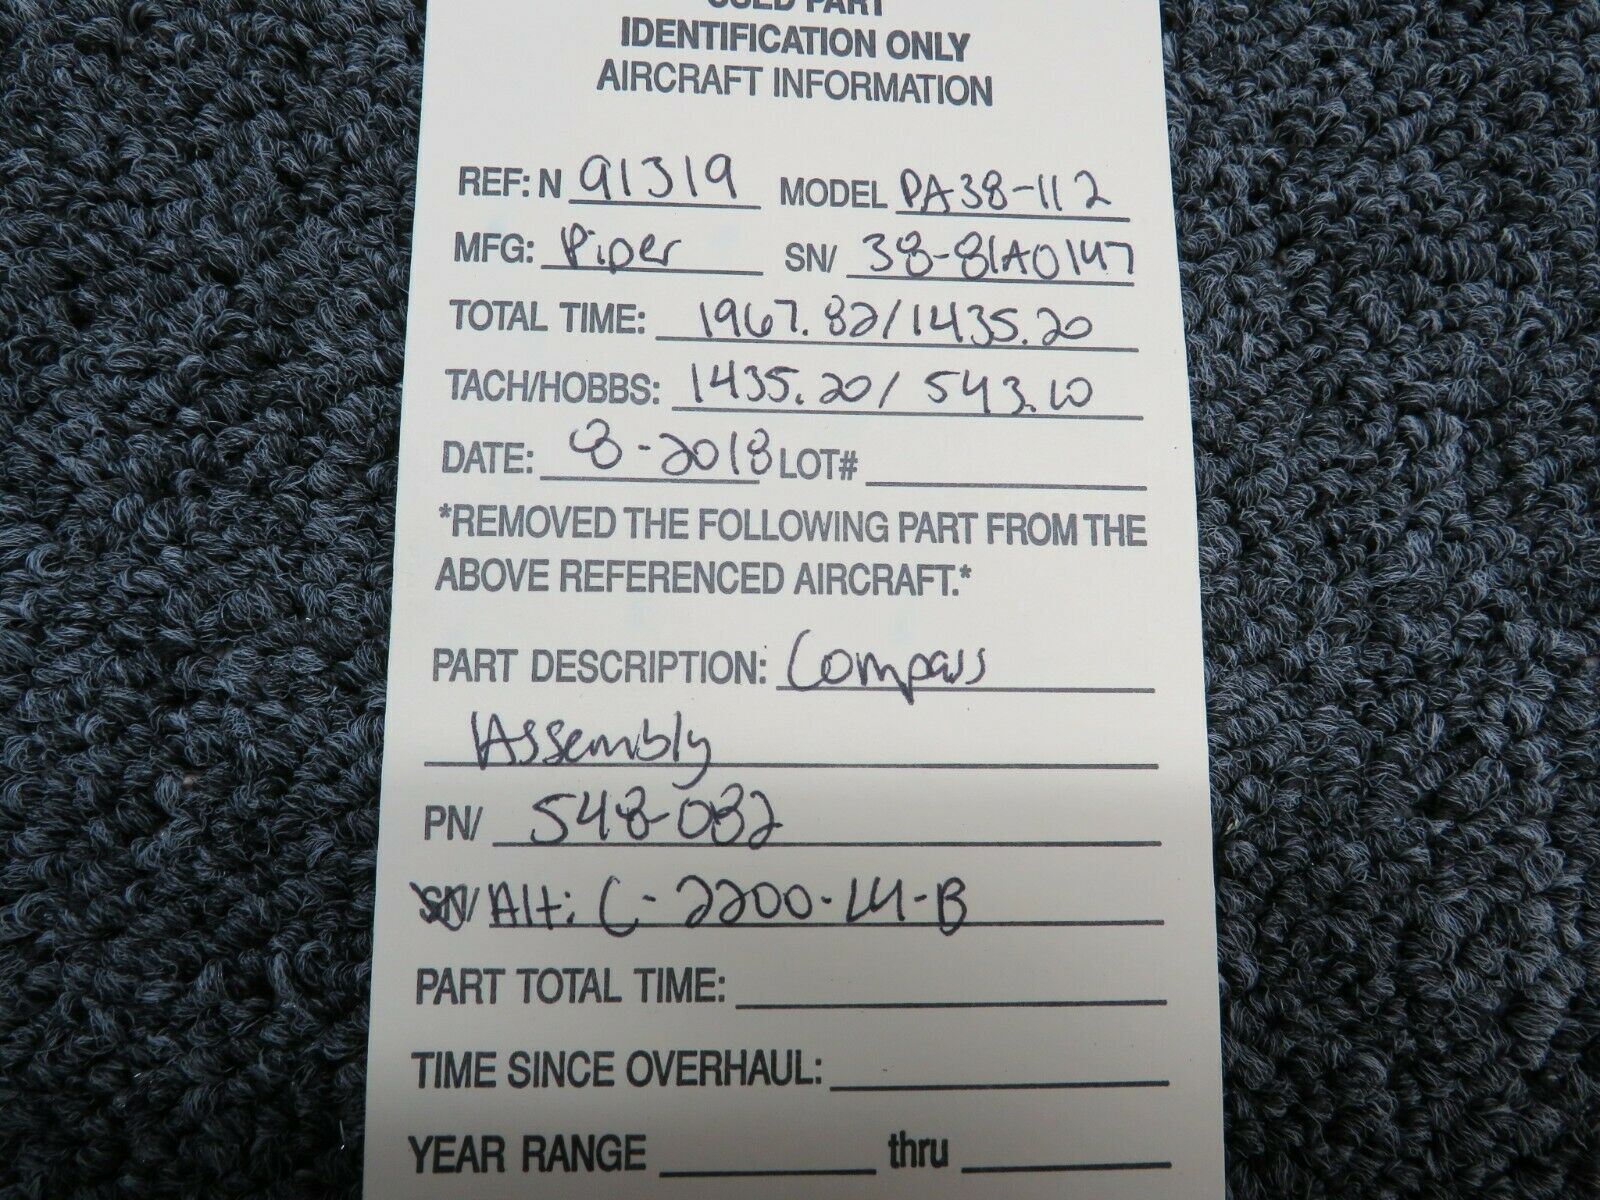 USED PART
IDENTIFICATION ONLY
AIRCRAFT INFORMATION
REF: N 91319 MODEL PA38-112
MFG: Piper SN/ 38-81A0147
TOTAL TIME: 1967.82/1435.20
TACH/HOBBS: 1435.20/ 543.10
DATE: 8-2018 LOT#
*REMOVED THE FOLLOWING PART FROM THE
ABOVE REFERENCED AIRCRAFT.*
PART DESCRIPTION: Compass
Assembly
PN/ 548-082
SN/ Alt: C-2200-L4-B
PART TOTAL TIME:
TIME SINCE OVERHAUL:
YEAR RANGE thru